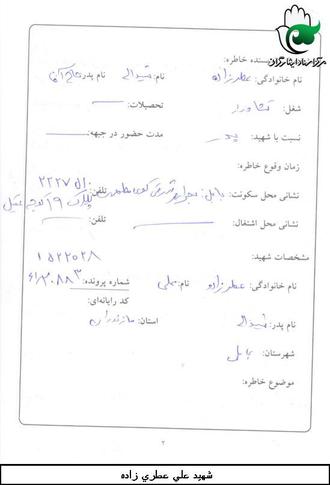 مرکز اسناد ایثارگران
نویسنده خاطره:
نام خانوادگی: عطرزاده نام: نام پدر: حاج آقا
شغل: کشاورز تحصیلات: —
نسبت با شهید: پدر مدت حضور در جبهه:
زمان وقوع خاطره:
نشانی محل سکونت: بابل تلفن: ۲۲۲۷
پلاک ۱۹
نشانی محل اشتغال: — تلفن: —
مشخصات شهید:
۱۵۲۲۰۲۸
نام خانوادگی: عطرزاده نام: علی شماره پرونده:
کد رایانه‌ای:
نام پدر: استان: مازندران
شهرستان: بابل
موضوع خاطره:
۲
شهيد علي عطري زاده